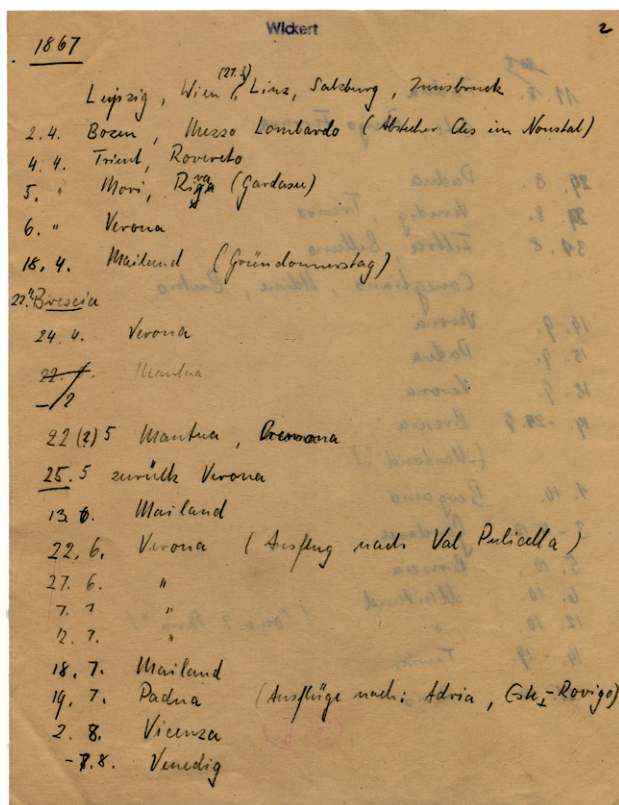 Wickert
2
1867
(27.3)
Leipzig, Wien, Linz, Salzburg, Innsbruck
2.4. Bozen, Mezzo Lombardo (Abstecher Cles im Nonstal)
4.4. Trient, Rovereto
5. " Mori, Riva (Gardasee)
6. " Verona
18.4. Mailand (Gründonnerstag)
22.4 Brescia
24.4. Verona
Mantua
22(?)5 Mantua, Cremona
25.5 zurück Verona
13.6. Mailand
22.6. Verona (Ausflug nach Val Pulicella)
27.6. "
7.7 "
12.7. "
18.7. Mailand
19.7. Padua (Ausflüge nach: Adria, Este-Rovigo)
2.8. Vicenza
-7.8. Venedig